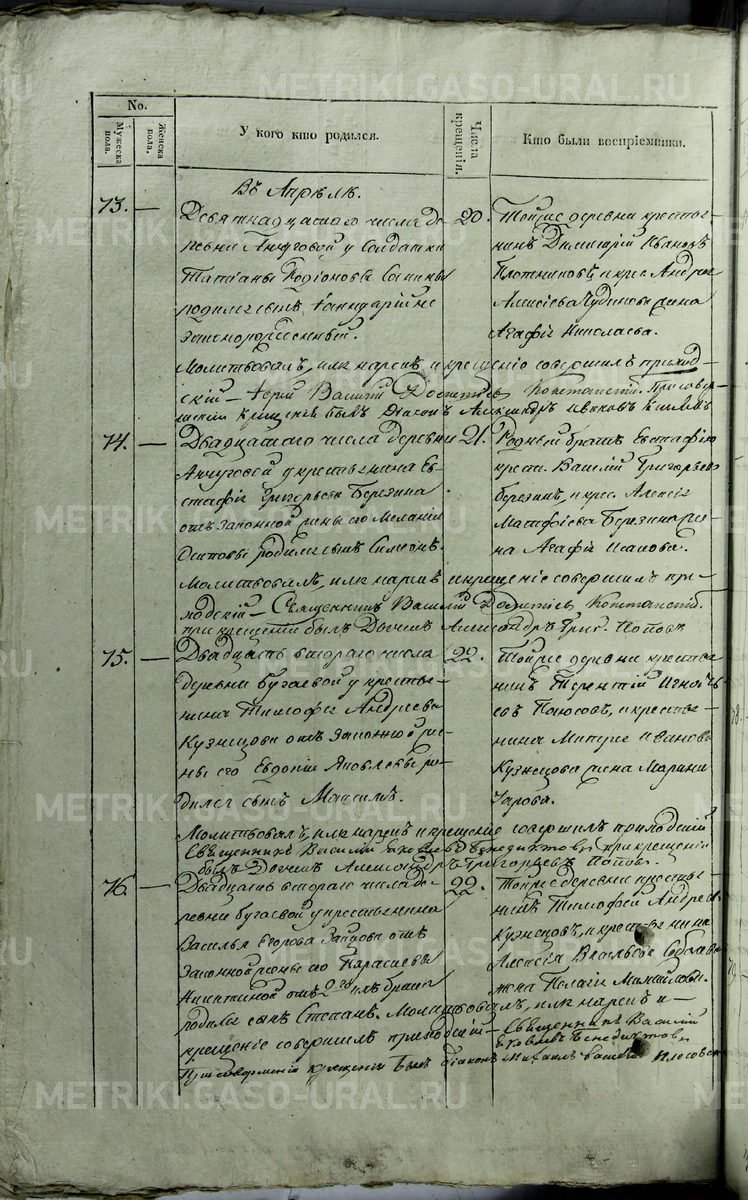 METRIKI.GASO-URAL.RU
No.
Мужеска пола.
Женска пола.
У кого кто родился.
Числа крещенія.
Кто были воспріемники.
Въ Апрѣлѣ.
73. —
Девятнадцатаго числа де-
ревни Анчуговой у солдатки
Татіаны Родіоновы
родился сынъ
законнорожденный.
20.
Тойже деревни крестья-
нинъ Димитрій Ивановъ
Плотниковъ, и крес. Андрея
Алексіева Чудинова жена
Агафія Николаева.
Молитвовалъ, имя нарекъ, и крещеніе совершилъ приход-
скій — Іерей Василій
крещенія былъ Діаконъ Александръ Ивановъ
74. —
Двадцатаго числа деревни
Анчуговой у крестьянина Ев-
стафія Григорьева Березина
отъ законной жены его Меланіи
Осиповы родился сынъ Симеонъ.
21.
Родный братъ Евстафію
крест. Василій Григорьевъ
Березинъ, и крес. Алексія
Матфіева Березина же-
на Агафія Исакова.
Молитвовалъ, имя нарекъ и крещеніе совершилъ при-
ходскій — Священникъ Василій
при крещеніи былъ Дьячекъ Александръ Григ. Поповъ
75. —
Двадцать втораго числа
деревни Бугаевой у крестья-
нина Тимофея Андреева
Кузнецова отъ законной же-
ны его Евдокіи Яковлевы ро-
дился сынъ Максимъ.
22.
Тойже деревни крестья-
нинъ Терентій Игнать-
евъ и крестья-
нина Митрія Иванова
Кузнецова жена Марина
Молитвовалъ, имя нарекъ и крещеніе совершилъ приходскій
Священникъ Василій Яковлевъ Бенедиктовъ при крещеніи
былъ Дьячекъ Александръ Григорьевъ Поповъ.
76. —
Двадцать втораго числа де-
ревни Бугаевой у крестьянина
Василья Егорова Зайцова отъ
законной жены его Парасковьи
Никитиной отъ 2го брака
родился сынъ Степанъ. Молитвовалъ, имя нарекъ и —
крещеніе совершилъ приходскій — Священникъ Василій
Яковлевъ Бенедиктовъ
При совершеніи крещенія былъ Діаконъ Михаилъ
22.
Тойже деревни крестья-
нинъ Тимофей Андреевъ
Кузнецовъ, и крестьянина
Алексія Васильева
жена Пелагія Михайлова.